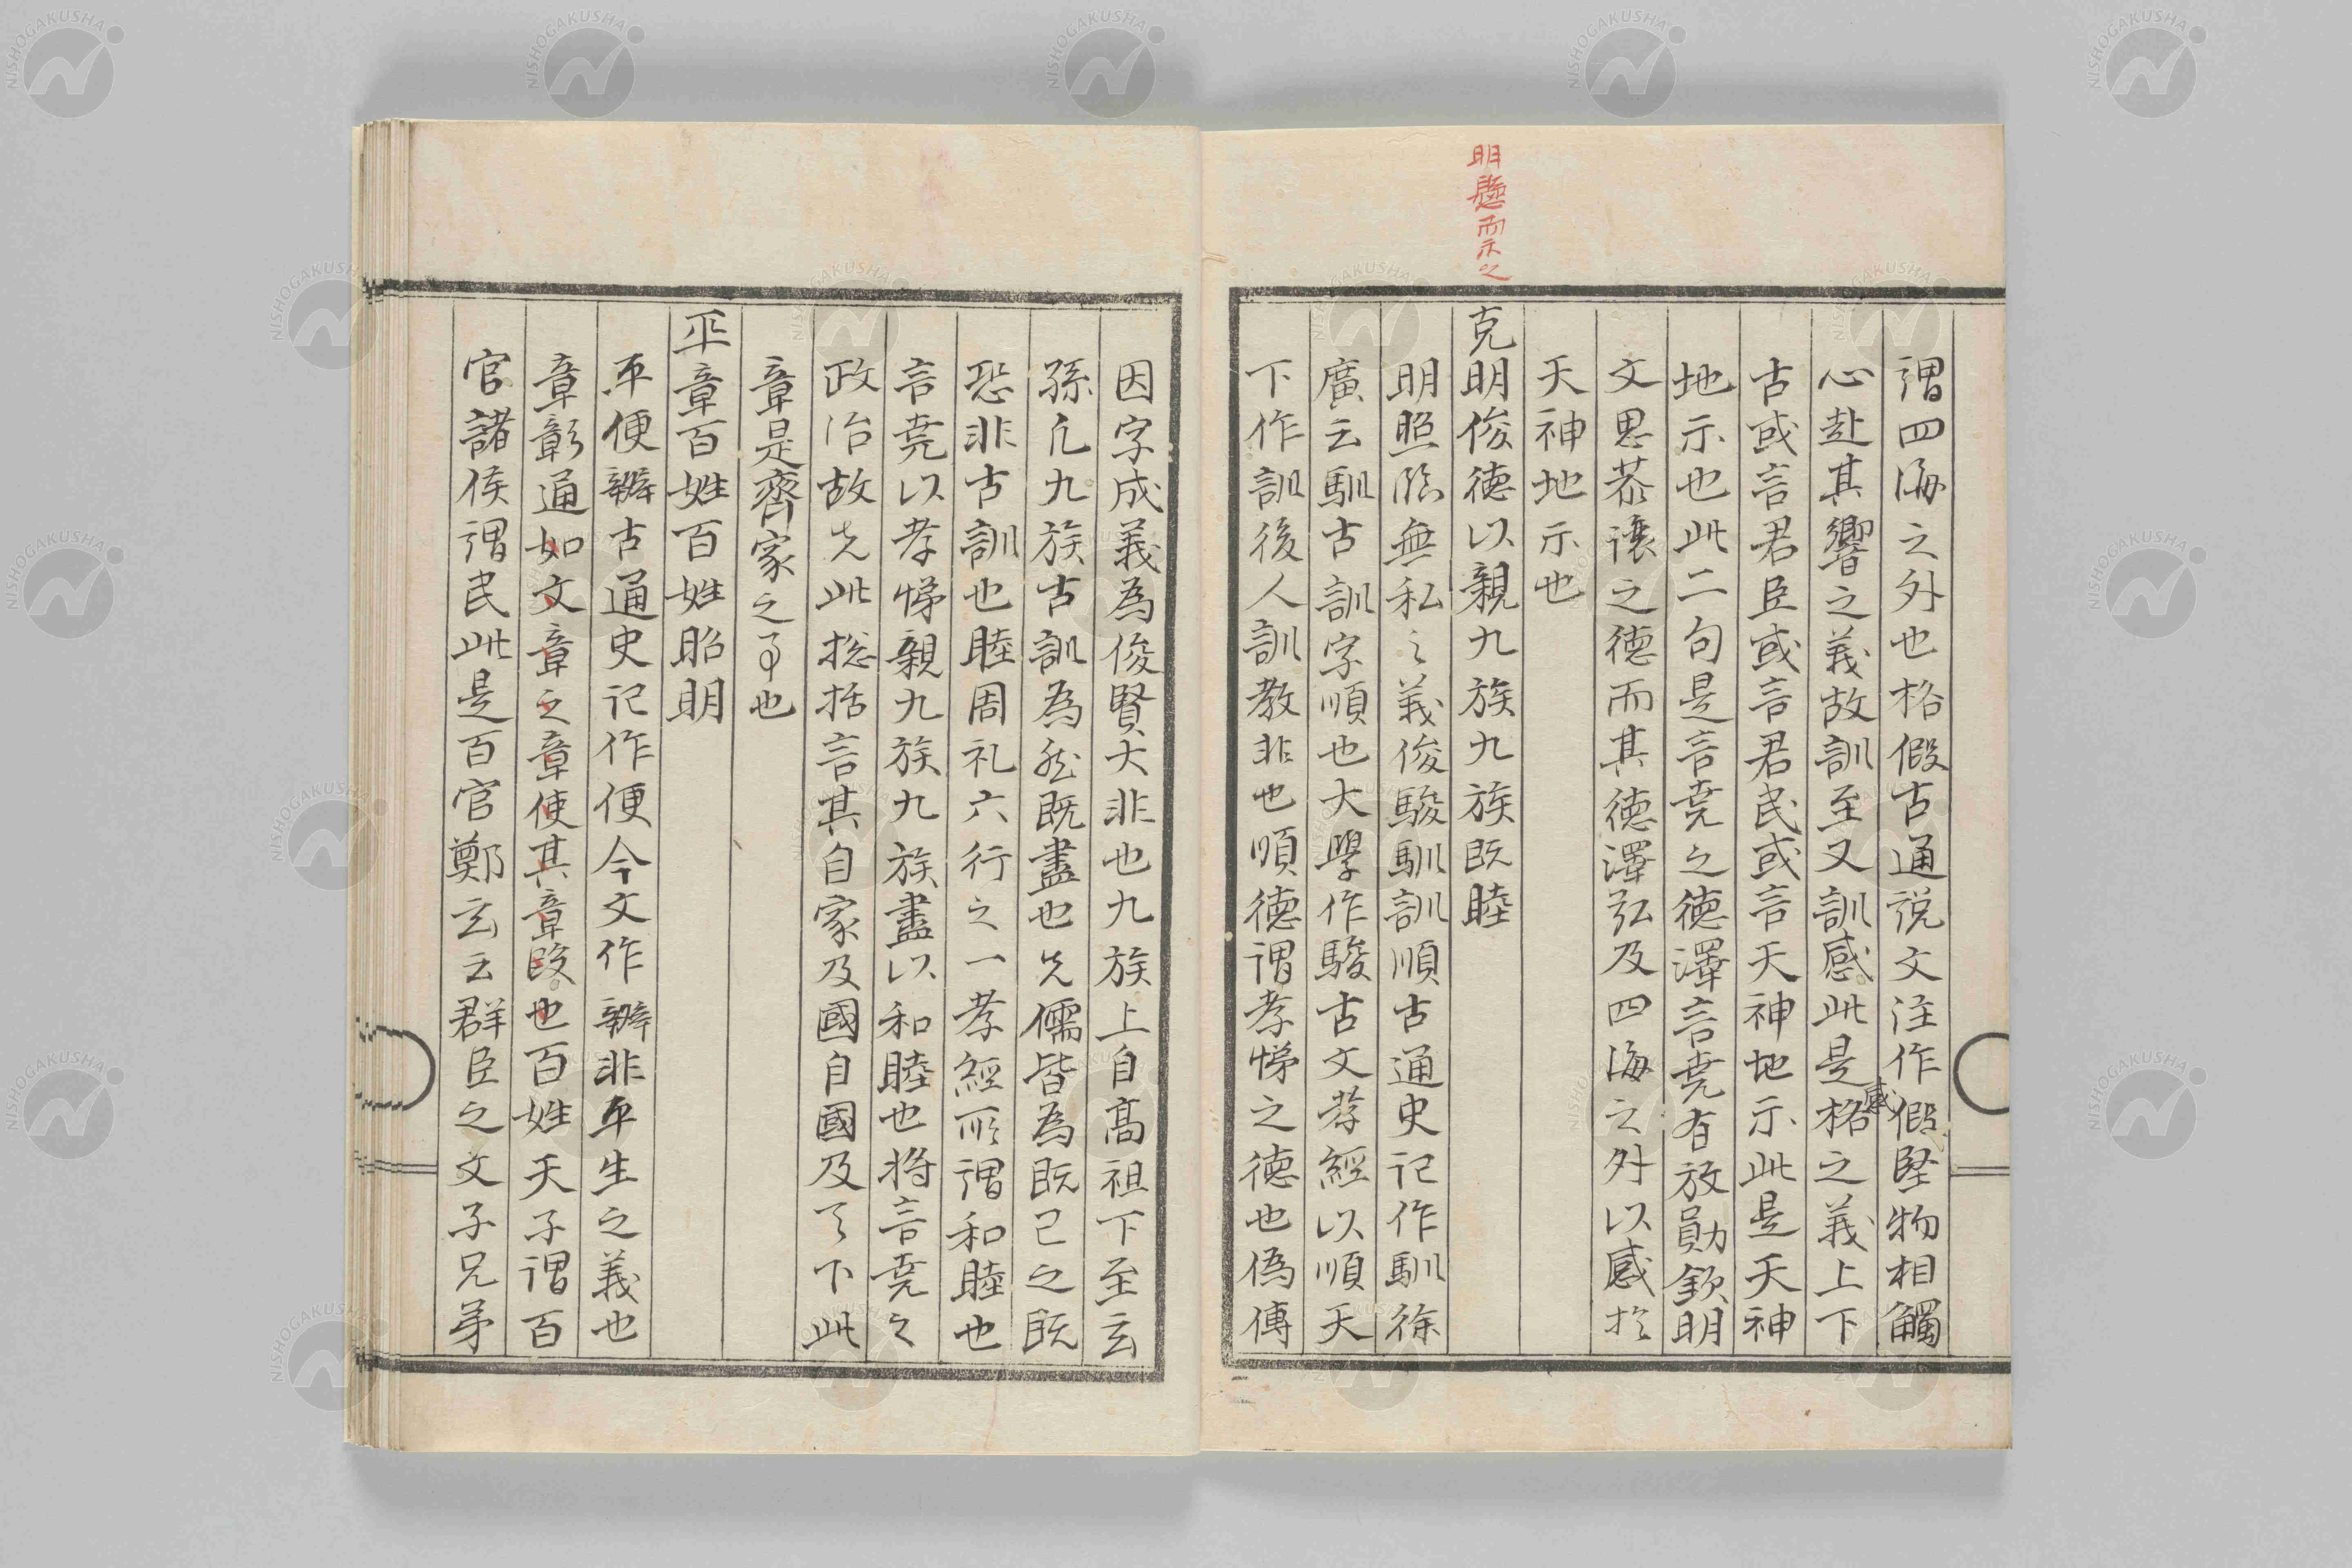 明懸而示之
謂四海之外也格假古通説文注作假堅物相觸
心赴其響之義故訓至又訓感此是格感之義上下
古或言君臣或言君民或言天神地示此是天神
地示也此二句是言堯之德澤言堯有放勛欽明
文思恭讓之德而其德澤弘及四海之外以感於
天神地示也
克明俊德以親九族九族既睦
明照臨無私之義俊駿馴訓順古通史记作馴徐
廣云馴古訓字順也大學作駿古文孝經以順天
下作訓後人訓教非也順德謂孝悌之德也偽傳
因字成義為俊賢大非也九族上自高祖下至玄
孫凡九族古訓為然既盡也先儒皆為既已之既
恐非古訓也睦周礼六行之一孝經所謂和睦也
言堯以孝悌親九族九族盡以和睦也將言堯之
政治故先此総括言其自家及國自國及天下此
章是齊家之事也
平章百姓百姓昭明
平便辨古通史记作便今文作辨非平生之義也
章彰通如文章之章使其章段也百姓天子謂百
官諸侯謂民此是百官鄭玄云群臣之文子兄弟
NISHOGAKUSHA